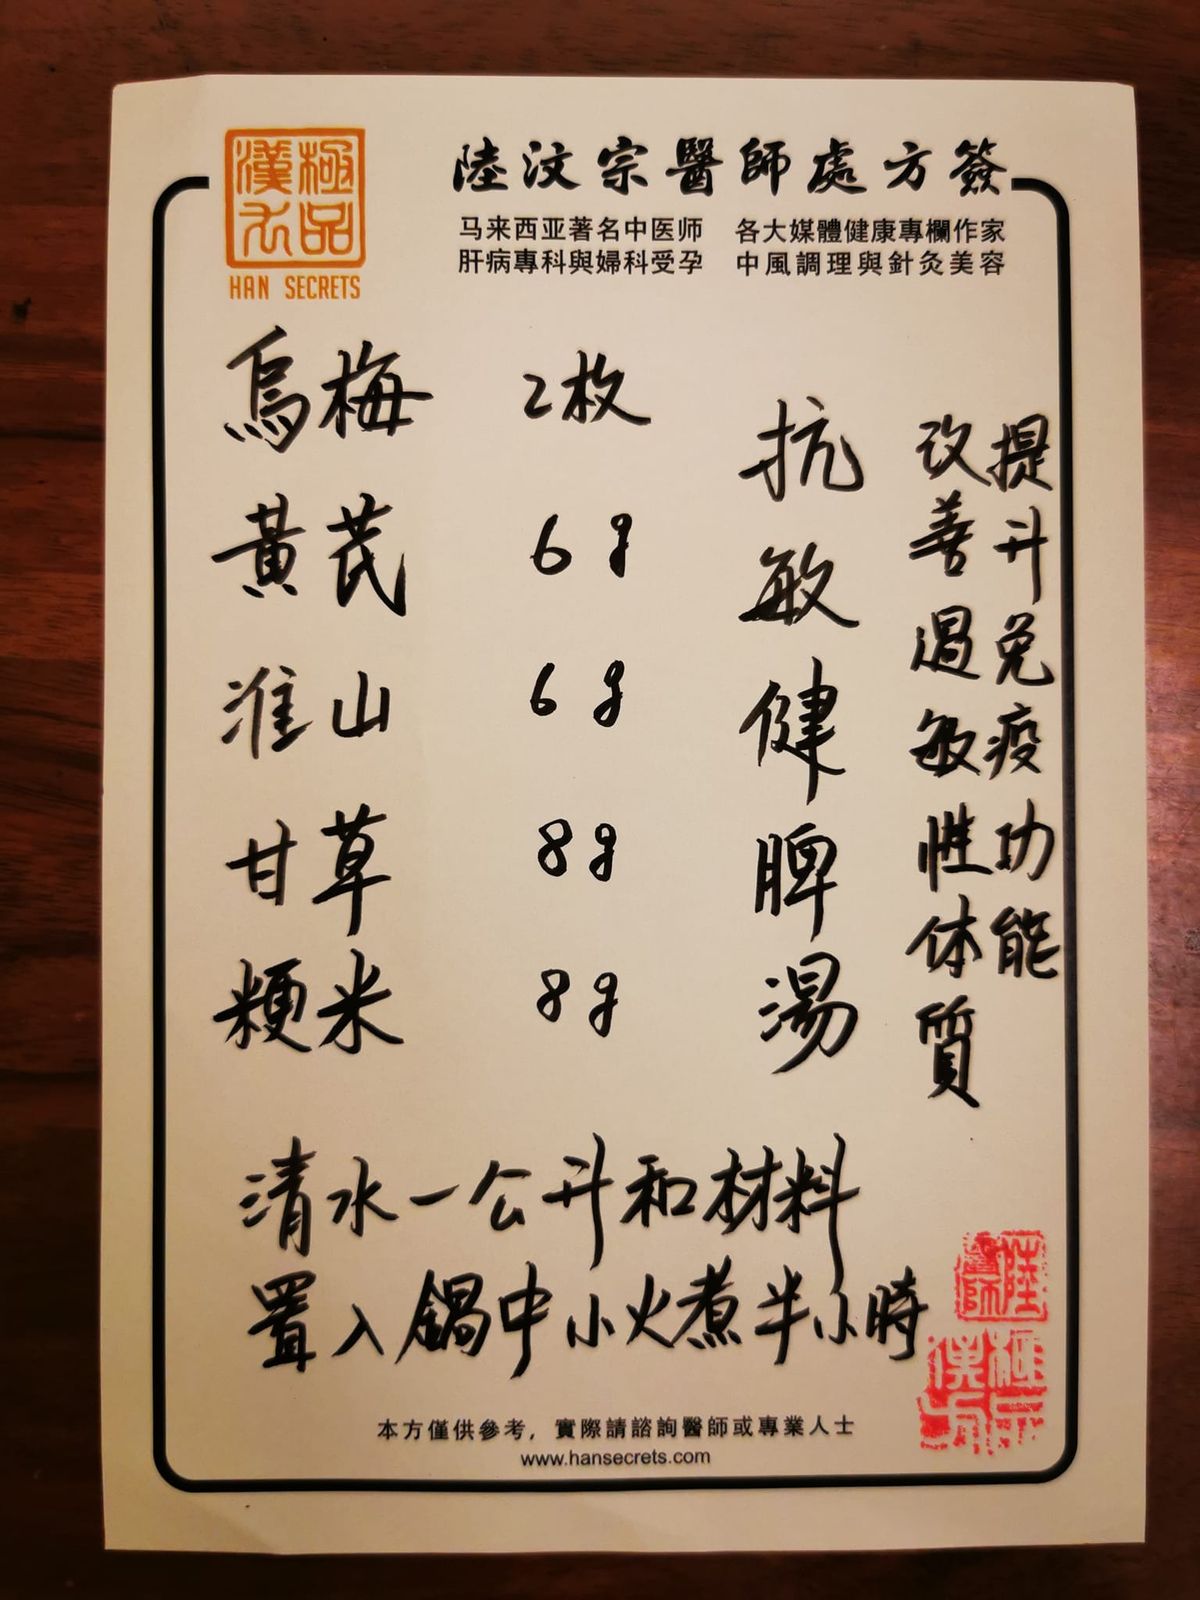 陸汶宗醫師處方簽
马来西亚著名中医师 各大媒體健康專欄作家
肝病專科與婦科受孕 中風調理與針灸美容
極品漢方
HAN SECRETS
提升免疫功能
改善過敏性体質
抗敏健脾湯
烏梅 2枚
黃芪 6g
淮山 6g
甘草 8g
粳米 8g
清水一公升和材料
置入鍋中小火煮半小時
陸醫師
本方僅供參考，實際請諮詢醫師或專業人士
www.hansecrets.com